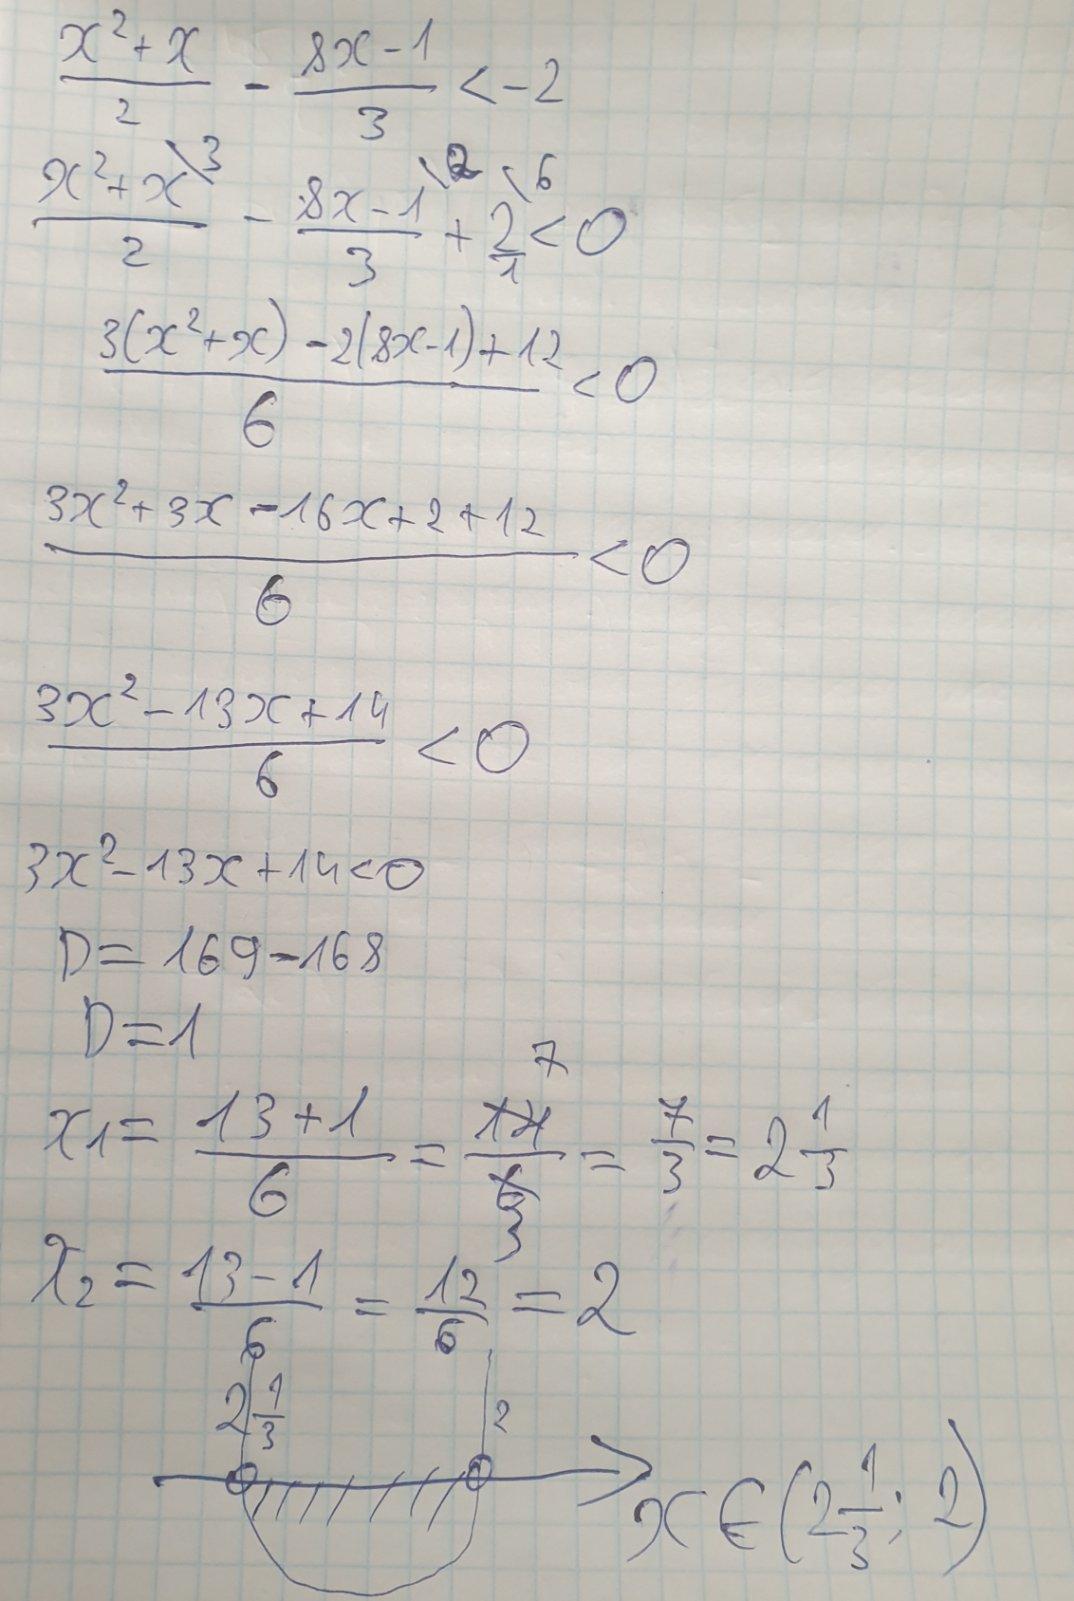 (x²+x)/2 - (8x-1)/3 < -2
(x²+x)/2 \3 - (8x-1)/3 \2 + 2/1 \6 < 0
(3(x²+x) - 2(8x-1) + 12)/6 < 0
(3x²+3x-16x+2+12)/6 < 0
(3x²-13x+14)/6 < 0
3x²-13x+14<0
D=169-168
D=1
x₁ = (13+1)/6 = 14/6 7 3 = 7/3 = 2 1/3
x₂ = (13-1)/6 = 12/6 = 2
2 1/3 2
x ∈ (2 1/3; 2)